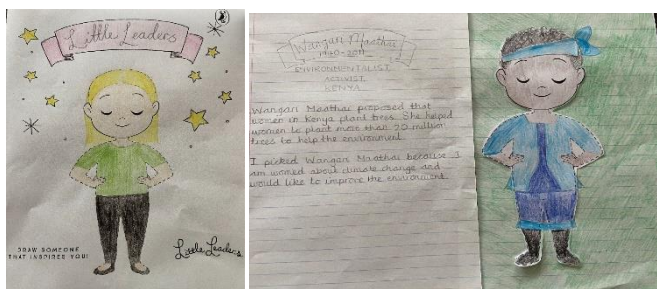 Little Leaders
DRAW SOMEONE
THAT INSPIRES YOU!
Little Leaders
Wangari Maathai
1940-2011
ENVIRONMENTALIST,
ACTIVIST,
KENYA
Wangari Maathai proposed that
women in Kenya plant trees. She helped
women to plant more than 20 million
trees to help the environment.
I picked Wangari Maathai because I
am worried about climate change and
would like to improve the environment.